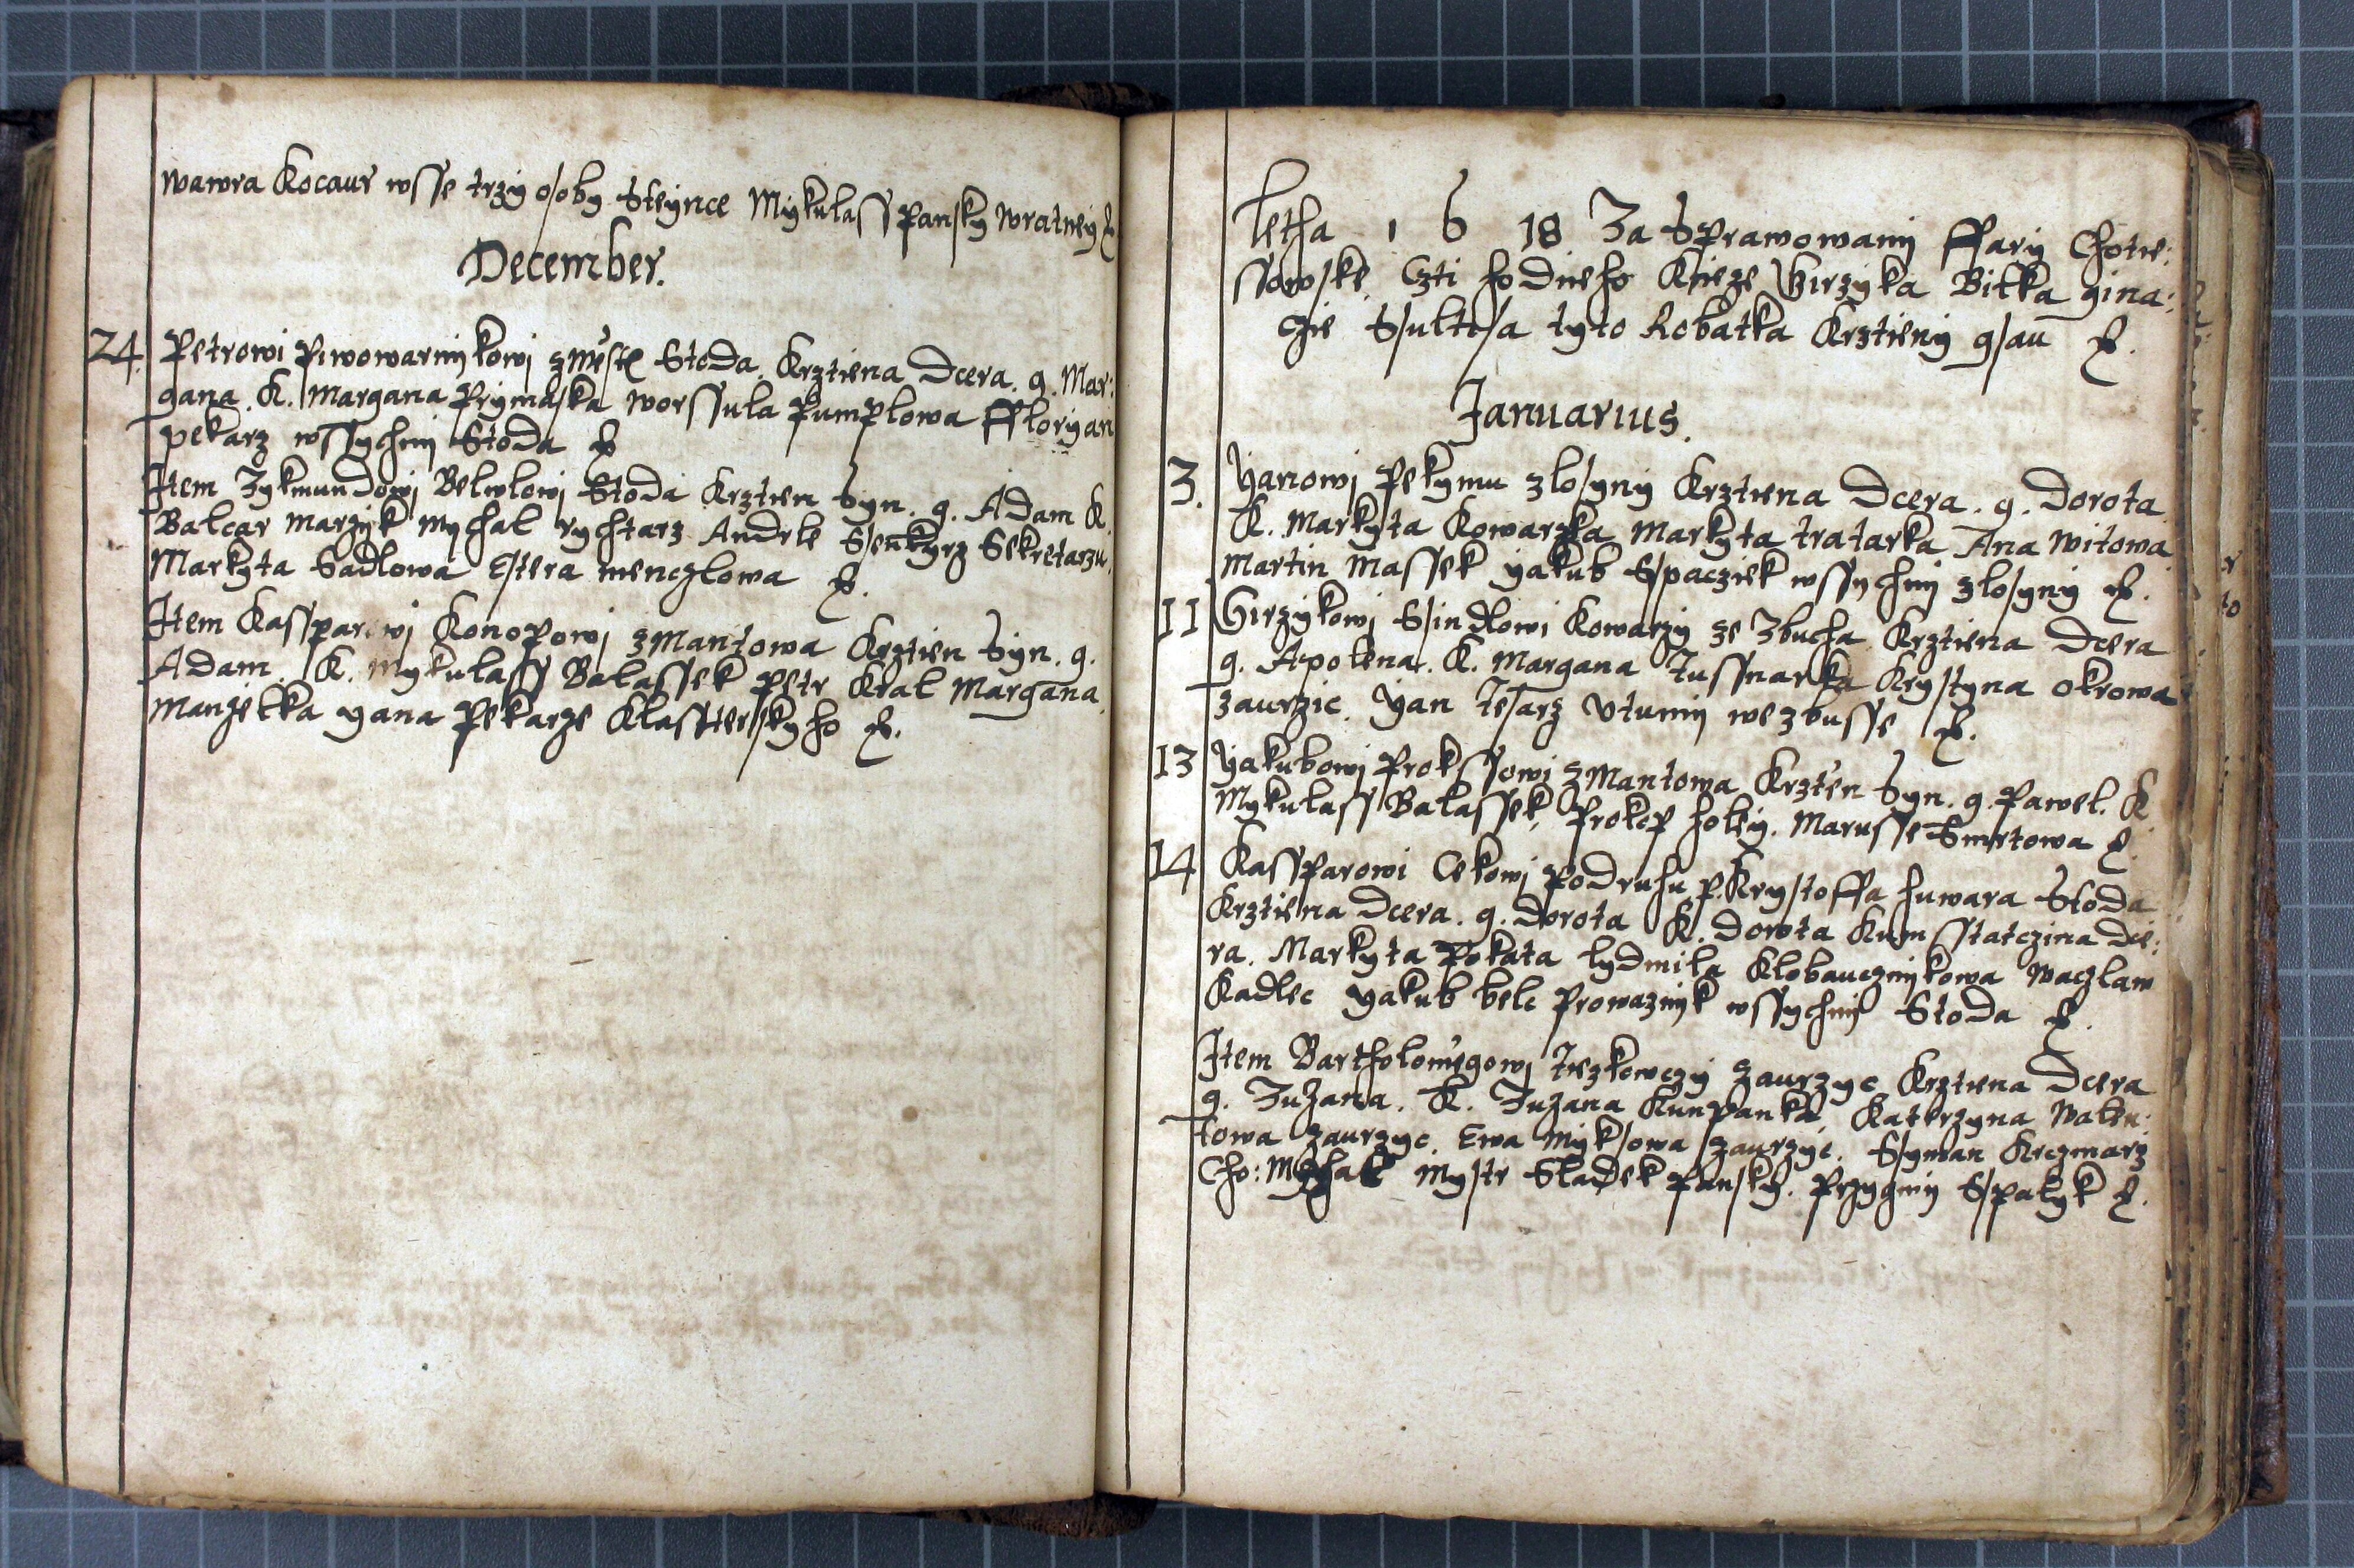 Wawra Kocaur wsse trzy osoby Steynce Mykulass pansky wratny
December.
24. Petrowi Piwowarnykowj z Stoda. Krztiena Dcera. g. Mar:
gana. K. Margana Prymaska Worssula Pumplowa Ffloryan
pekarz wssychnj Stoda
Item Zykmundowj Belwlowj Stoda Krztien Syn. g. Adam K.
Balcar Marzyk Mychal rychtarz Andrle Ssenkyrz Sekretarzu.
Markyta Sadlowa Estera Wenczlowa
Item Kassparowj Konopowj z Mantowa Krztien Syn. g.
Adam. K. Mykulass Balassek Petr Kral Margana
Manzelka yana Pekarze Klasstersskyho
Letha 1 6 18 Za Sprawowanj Ffary Chotie:
ssowske Czti hodneho Knieze Girzyka Bitka gina:
czie Ssultesa tyto Robatka Krztieny gsau
Januarius.
3. Yanowj Pekymu z losyny Krztiena Dcera. g. Dorota
K. Markyta Kowarzka Markyta tratarka Ana Witowa
Martin Massek yakub Sspaczek wssychnj z losyny
11 Girzykowj Ssindlowi Kowarzy ze Zbucha Krztiena Dcera
g. Apolena. K. Margana Tussnarka Krystyna okrowa
zaurzic. Yan Tesarz Utunnj we zbusse
13 Yakubowj Prokssowi z Mantowa Krzten Syn. g. Pawel. K.
Mykulass Balassek, Prokop holey. Marusse Smrtowa
14 Kassparowi Cekowj podruhu p. Krystoffa huwara Stoda
Krztiena Dcera. g. Dorota K. Dorota Kumsstatczina dce:
ra. Markyta Pokata lydmila Klobaucznykowa Waczlaw
Kadlec yakub belc Prowaznyk wssychnj Stoda
Item Bartholomiegowj Tiezkowczy zaurzyc Krztiena Dcera
g. Zuzana. K. Zuzana Kunpanka Katerzyna Walen:
towa zaurzyc. Ewa Myksowa zaurzyc. Ssyman Krczmarz
Cho: Mychal Mystr Sladek pansky. Przygmy Sspalyk